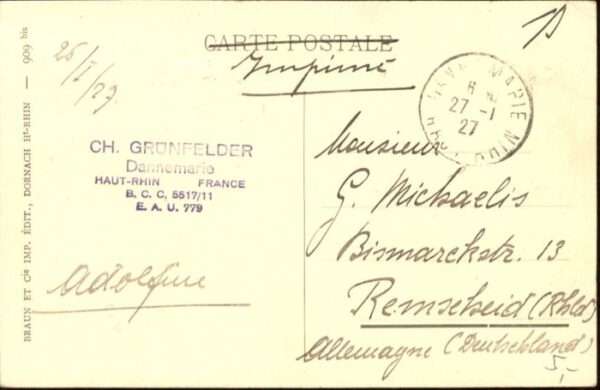 BRAUN ET Cie IMP. ÉDIT., DORNACH Ht-RHIN — 909 bis
CARTE POSTALE
Imprimé
26/I/27
MARIE
27 -1
27
CH. GRÜNFELDER
Dannemarie
HAUT-RHIN FRANCE
B. C. C. 5517/11
E. A. U. 779
Monsieur
G. Michaelis
Bismarckstr. 13
Remscheid (Rhld)
Allemagne (Deutschland)
5,-